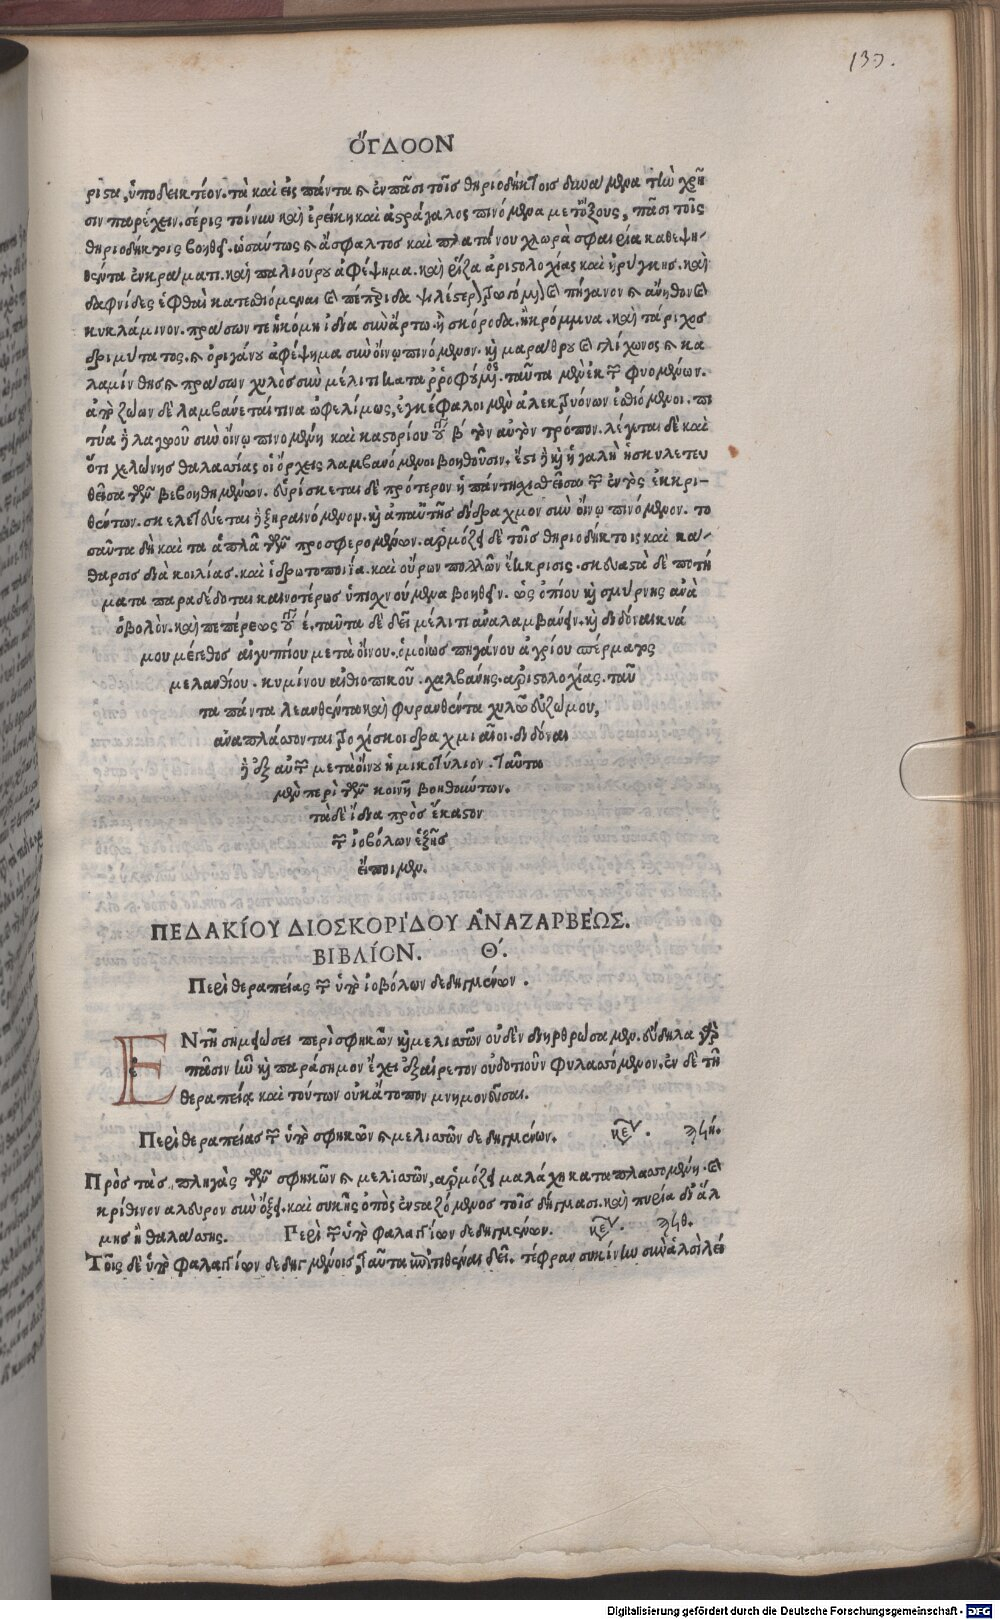 130.
ΟΓΔΟΟΝ
ριστα, ὑποδεικτέον. τὰ καὶ εἰς πάντα καὶ ἐν πᾶσι τοῖς θηριοδήκτοις δυνάμενα τὴν χρῆ
σιν παρέχειν. σέρις τοίνυν καὶ ἐρείκη καὶ ἀστράγαλος πινόμενα μετ᾽ ὄξους, πᾶσι τοῖς
θηριοδήκτοις βοηθεῖ. ὡσαύτως καὶ ἄσφαλτος καὶ πλατάνου χλωρὰ σφαιρία καθεψη-
θέντα ἐν κράματι. καὶ παλιούρου ἀφέψημα. καὶ ῥίζα ἀριστολοχίας καὶ ἠρύγγης. καὶ
δαφνίδες ἑφθαὶ κατεσθιόμεναι καὶ πήγανον καὶ ἄνηθον καὶ
κυκλάμινον. πράσων τε ἡ κόμη ἰδία σὺν ἄρτω. ἢ σκόροδα. ἢ κρόμμυα. καὶ τάριχος
δριμύτατος. καὶ ὀριγάνου ἀφέψημα σὺν οἴνῳ πινόμενον. καὶ μαράθρου καὶ γλίχωνος καὶ κα
λαμίνθης καὶ πράσων χυλὸς σὺν μέλιτι καταρροφούμενος. ταῦτα μὲν ἐκ τῶν φυομένων.
ἀπὸ ζώων δὲ λαμβάνεταί τινα ὠφελίμως, ἐγκέφαλοι μὲν ἀλεκτρυόνων ἐσθιόμενοι. πι
τύα ἢ λαγωοῦ σὺν οἴνῳ πινομένη καὶ καστορίου β τὸν αὐτὸν τρόπον. λέγεται δὲ καὶ
ὅτι χελώνης θαλασσίας οἱ ὄρχεις λαμβανόμενοι βοηθοῦσιν. ἔτι ἢ καὶ ἡ γαλῆ ἡ σκυλευ
θεῖσα τῶν βεβοηθημένων. εὑρίσκεται δὲ πρότερον ἡ πάντη χιαθεῖσα τῶν ἐντὸς ἐκκρι-
θέντων. σκελετεύεται ἢ ξηραινόμενον. καὶ ἀπ᾽ αὐτῆς δίδραχμον σὺν οἴνῳ πινόμενον. το
σαῦτα δὴ καὶ τὰ ἁπλᾶ τῶν προσφερομένων. ἁρμόζει δὲ τοῖς θηριοδήκτοις καὶ κά
θαρσις διὰ κοιλίας. καὶ ἱδρωτοποιία. καὶ οὔρων πολλῶν ἔκκρισις. σκευαστὰ δὲ ποτή
ματα παραδέδοται καινοτέρως ὑπισχνούμενα βοηθεῖν. ὡς ὀπίου καὶ σμύρνης ἀνὰ
ὀβολὸν. καὶ πεπέρεως ε. ταῦτα δὲ δεῖ μέλιτι ἀναλαμβάνειν. καὶ διδόναι κυά
μου μέγεθος αἰγυπτίου μετὰ οἴνου. ὁμοίως πηγάνου ἀγρίου σπέρματος
μελανθίου. κυμίνου αἰθιοπικοῦ. χαλβάνης. ἀριστολοχίας. ταῦ
τα πάντα λεανθέντα καὶ φυραθέντα χυλῷ εὐζώμου,
ἀναπλάσσονται τροχίσκοι δραχμιαῖοι. διδόναι
ἢ ἐξ αὐτῶν μετὰ οἴνου ἡμικοτύλιον. ταῦτα
μὲν περὶ τῶν κοινῇ βοηθούντων.
τὰ δὲ ἴδια πρὸς ἕκαστον
τῶν ἰοβόλων ἑξῆς
εἴποιμεν.
ΠΕΔΑΚΙΟΥ ΔΙΟΣΚΟΡΙΔΟΥ ΑΝΑΖΑΡΒΕΩΣ.
ΒΙΒΛΙΟΝ. Θ´.
Περὶ θεραπείας τῶν ὑπὸ ἰοβόλων δεδηγμένων.
ΕΝ τῇ σημειώσει περὶ σφηκῶν καὶ μελισσῶν οὐδὲν διηρθρώσαμεν. εὔδηλα γὰρ
πᾶσιν ἦν καὶ παράσημον ἔχει ἐξαίρετον οὐδοτιοῦν φυλασσόμενον. ἐν δὲ τῇ
θεραπείᾳ καὶ τούτων οὐκ ἄτοπον μνημονεῦσαι.
Περὶ θεραπείας τῶν ὑπὸ σφηκῶν καὶ μελισσῶν δεδηγμένων. κεν.
Πρὸς τὰς πληγὰς τῶν σφηκῶν καὶ μελισσῶν, ἁρμόζει μαλάχη καταπλασσομένη. καὶ
κρίθινον ἄλευρον σὺν ὄξει. καὶ συκῆς ὀπὸς ἐνσταζόμενος τοῖς δήγμασι. καὶ πυρία δι᾽ ἅλ
μης ἢ θαλάσσης. Περὶ τῶν ὑπὸ φαλαγγίων δεδηγμένων. κεν.
Τοῖς δὲ ὑπὸ φαλαγγίων δεδηγμένοις, ταῦτα ἐπιτιθέναι δεῖ. τέφραν συκίνην σὺν ἁλσὶ λεί
Digitalisierung gefördert durch die Deutsche Forschungsgemeinschaft - DFG